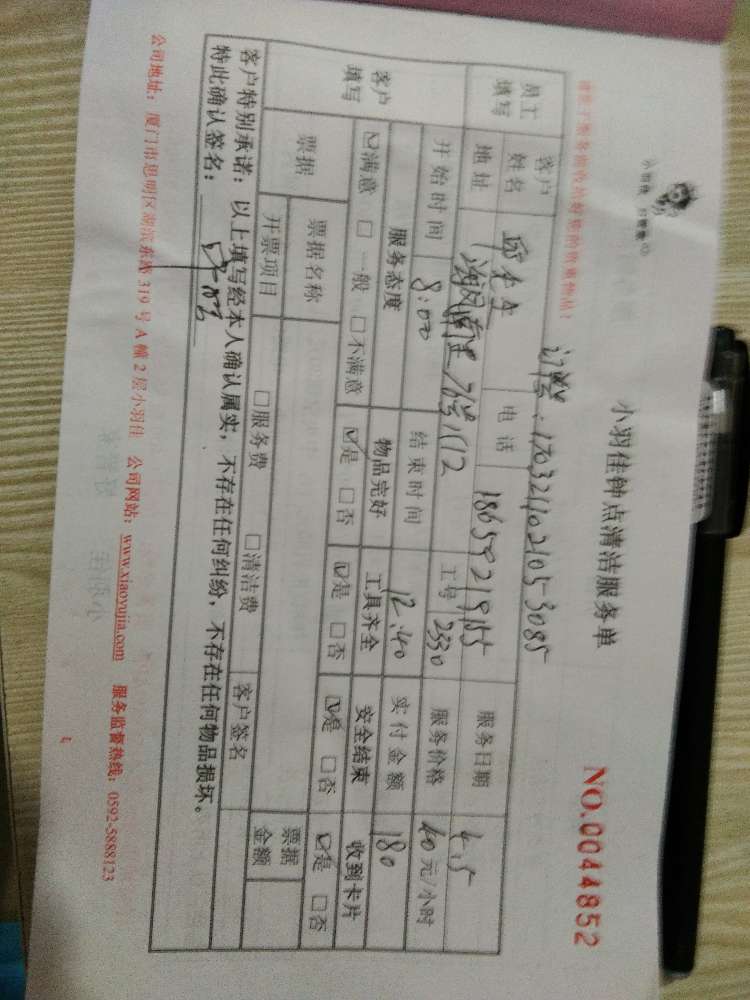 小羽佳钟点清洁服务单
NO.0044852
订单：17032110210530 85
员工填写 客户姓名 邱先生 电话 服务日期 4.5
地址 工号 2330 服务价格 40元/小时
客户填写 开始时间 8:00 结束时间 12:40 实付金额 180
服务态度 物品完好 工具齐全 安全结束 收到卡片
☑满意 □一般 □不满意 ☑是 □否 ☑是 □否 ☑是 □否 ☑是 □否
票据 票据名称 票据金额
开票项目 □服务费 □清洁费 客户签名
客户特别承诺：以上填写经本人确认属实，不存在任何纠纷，不存在任何物品损坏。
特此确认签名：
公司地址：厦门市思明区湖滨东路319号A幢2层小羽佳 公司网站：www.xiaoyujia.com 服务监督热线：0592-5888123